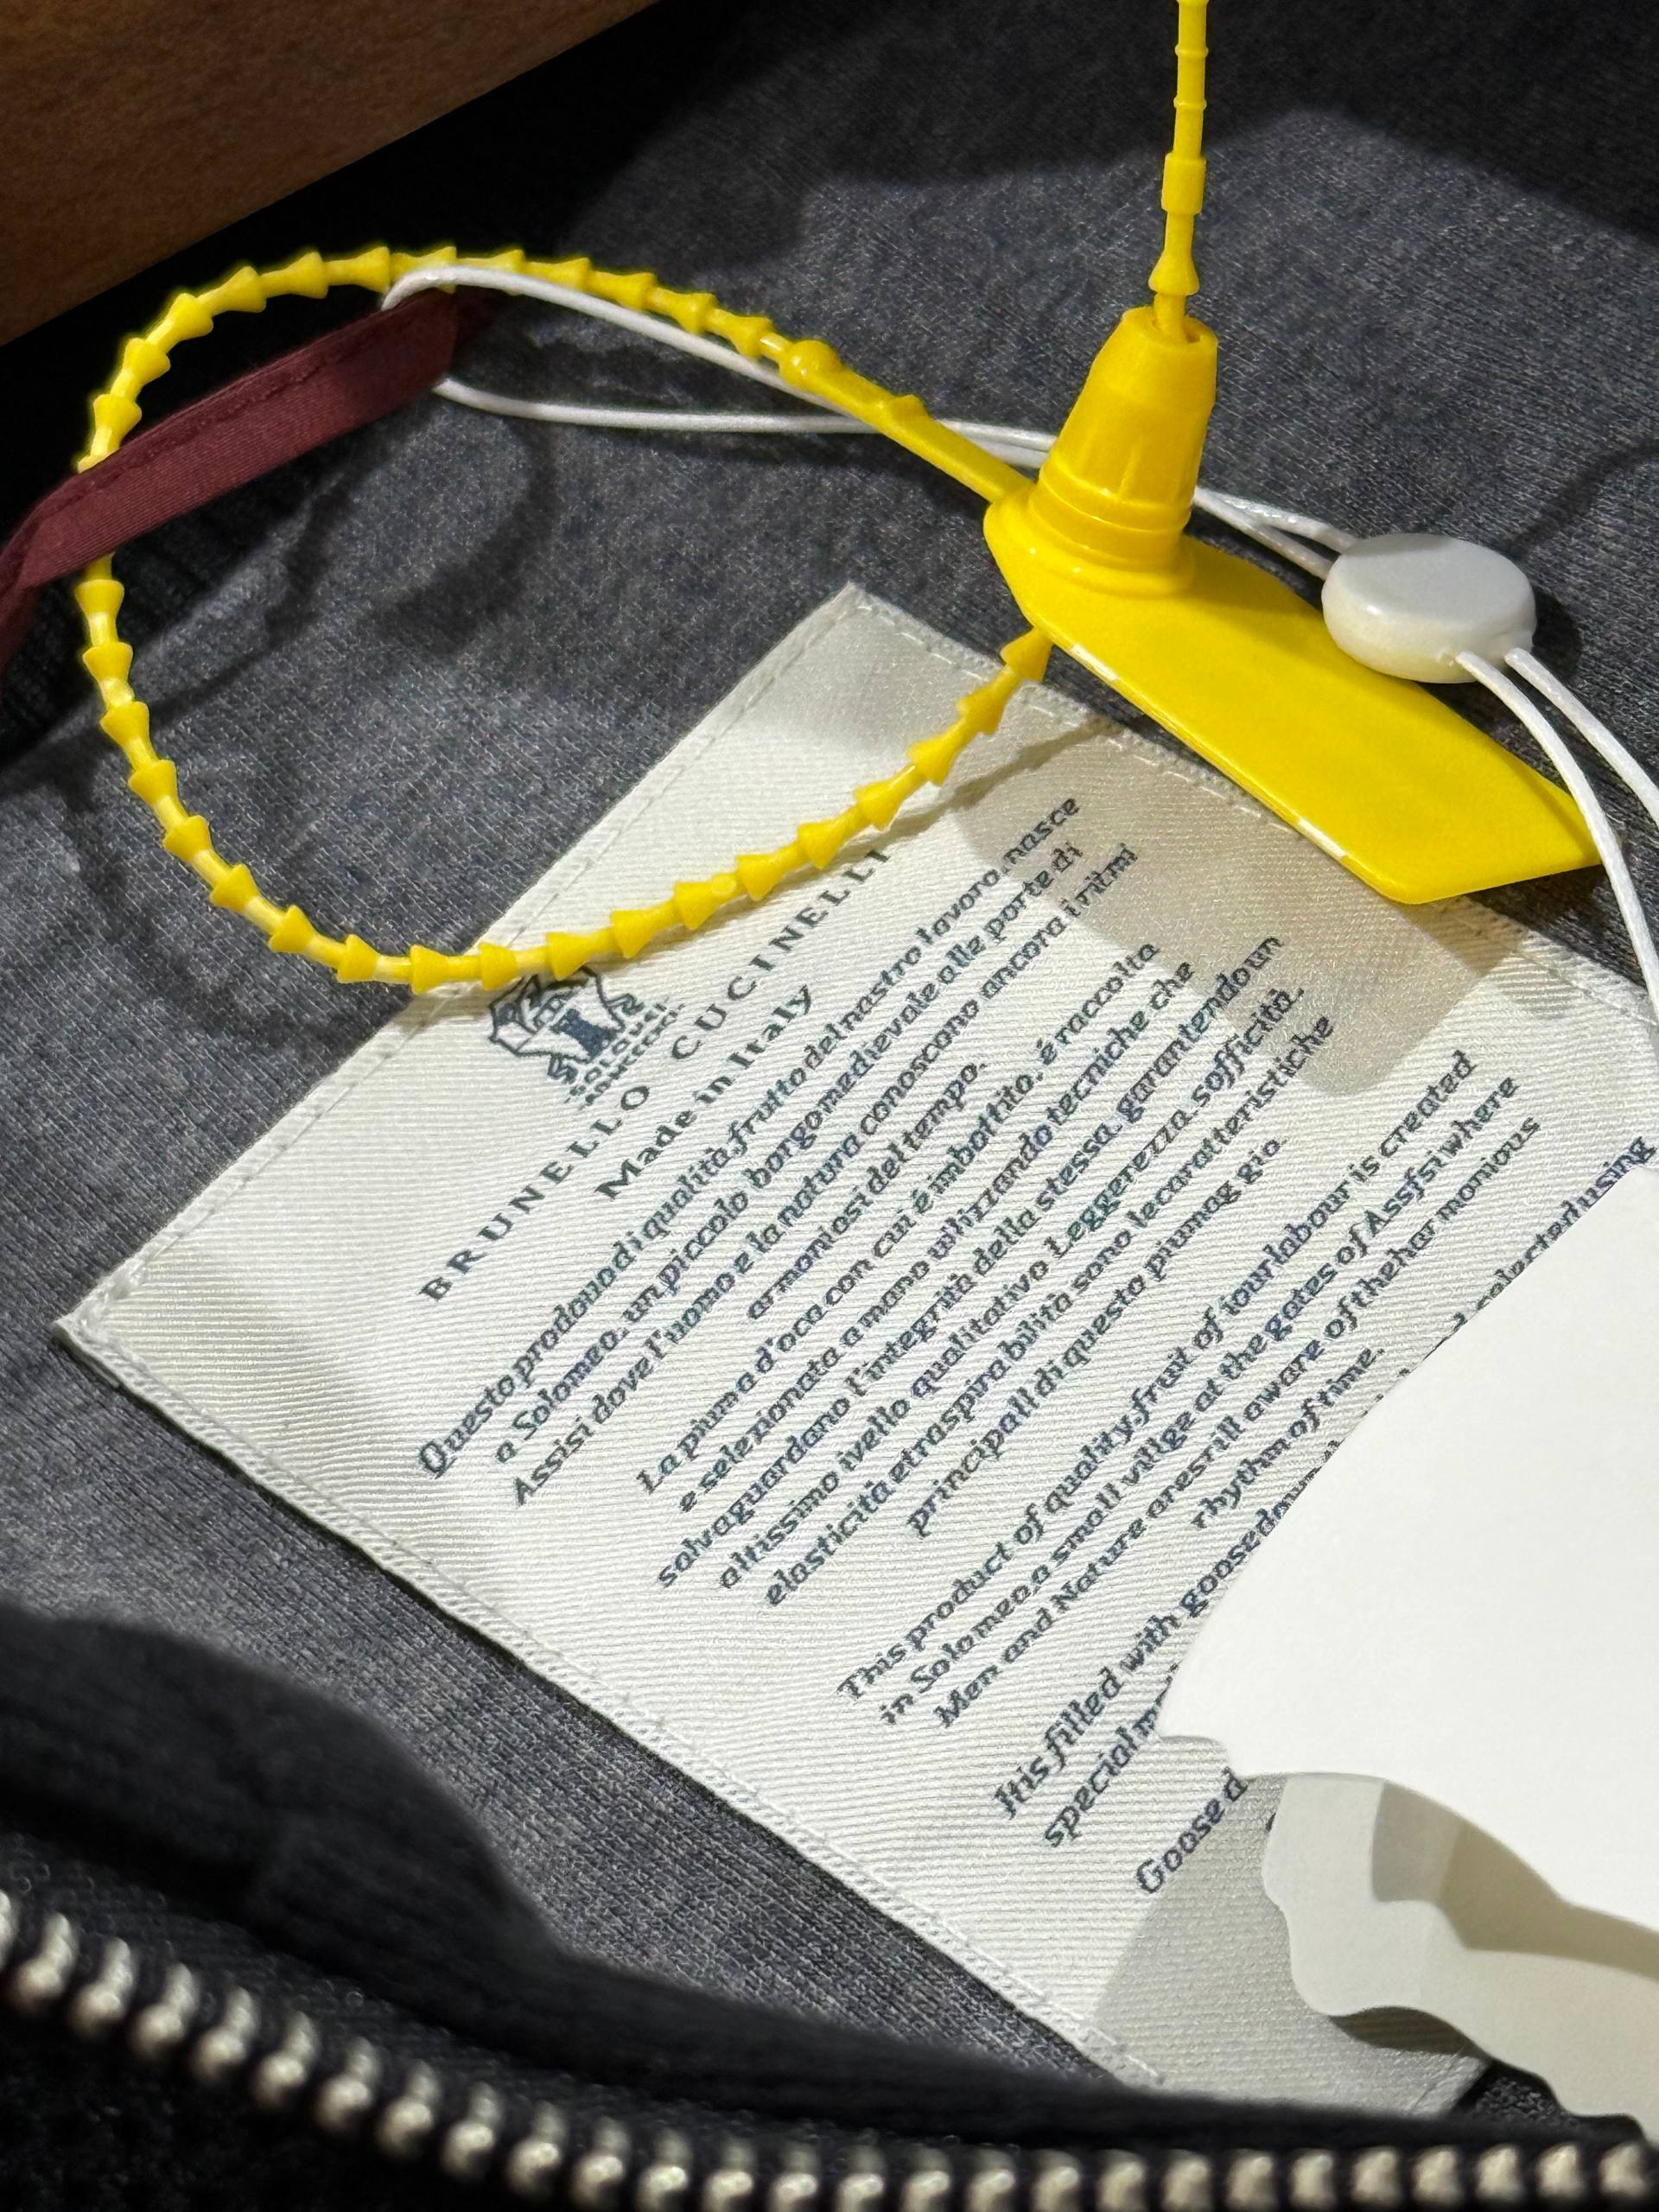 BRUNELLO CUCINELLI
Made in Italy
Questo prodouo di qualità, frutto del nostro lavoro, nasce
a Solomeo, un piccolo borgo medievale alle porte di
Assisi dove l'uomo e la natura conoscono ancora i ritmi
armoniosi del tempo.
La piuma d'oca con cui é imbottito, é raccolta
e selezionata a mano utilizzando tecniche che
salvaguardano l'integrità della stessa, garantendo un
altissimo ivello qualitativo Leggerezza, sofficità,
elasticità e traspirabilità sono le caratteristiche
principali di questo piumaggio.
This product of quality, fruit of iour labour is created
in Solomeo, a small villge at the gates of Assfsi where
Men and Nature are srill aware of the har monious
rhythm of time.
It is filled with goose selected using
special
Goose